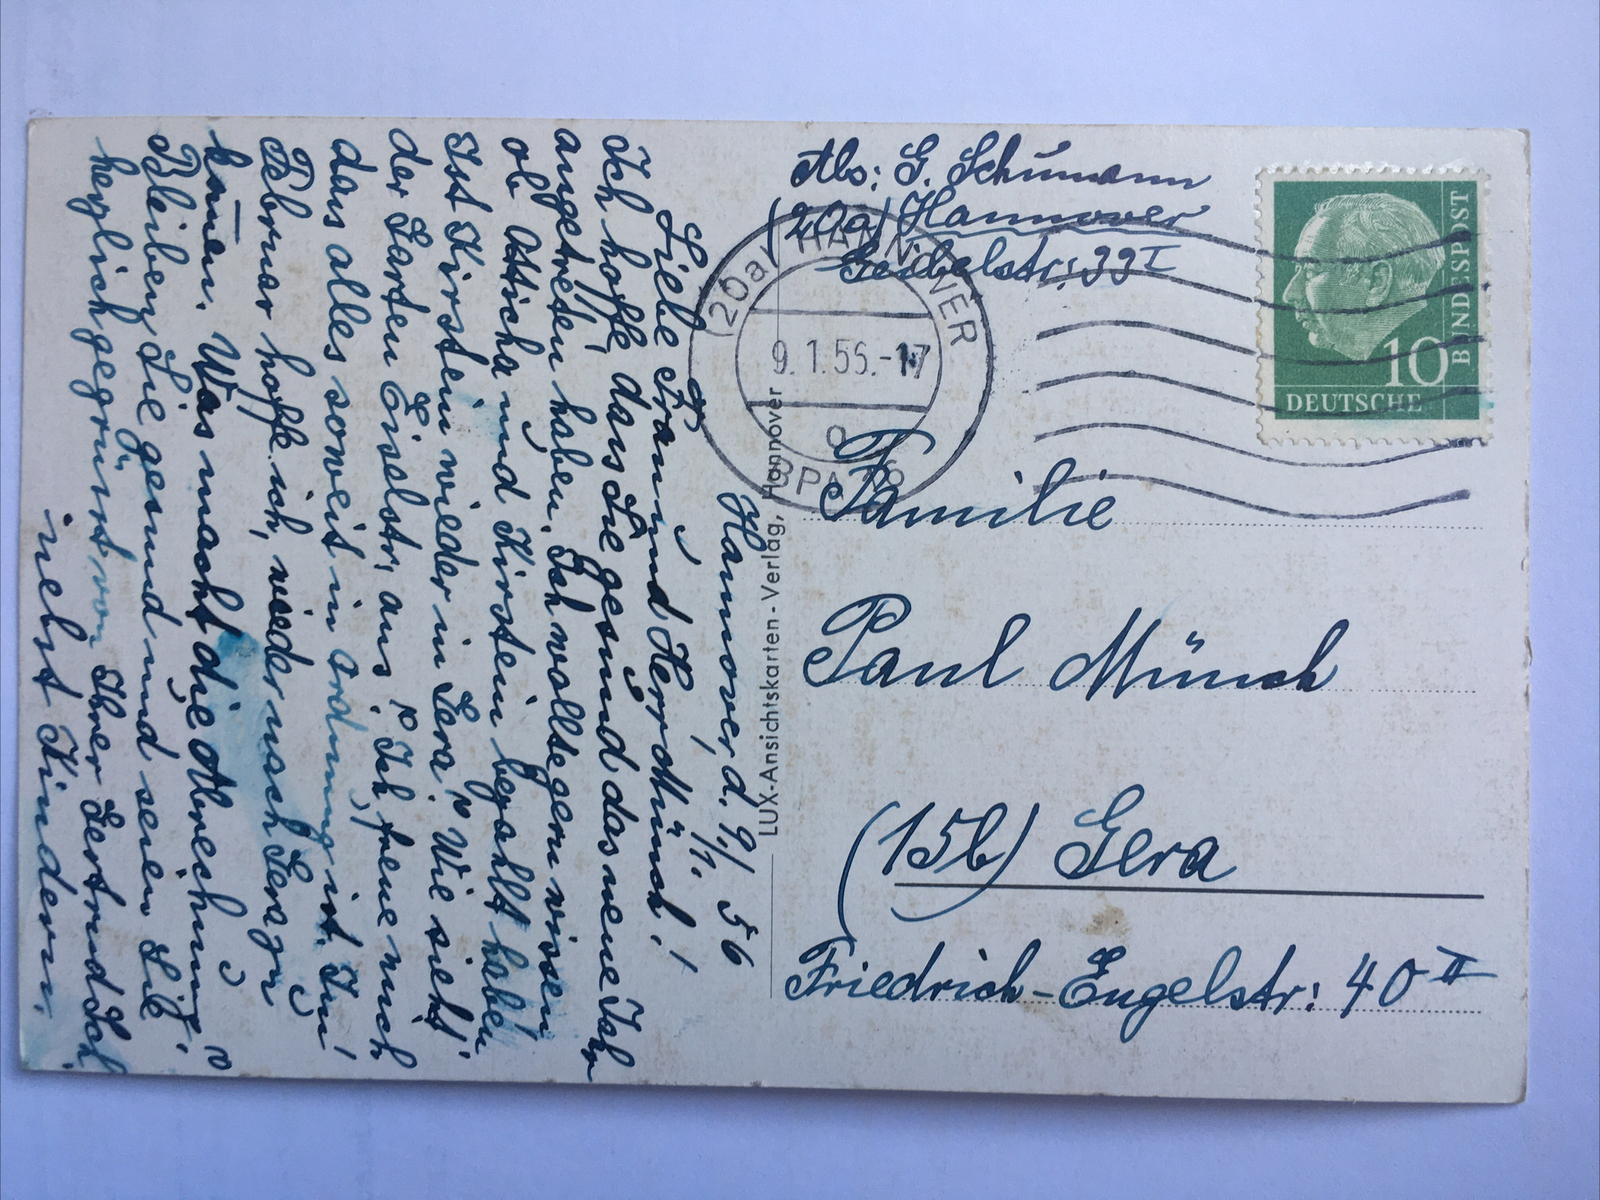 Hannover, d. 9./1. 56
Liebe Frau und Herr Münch!
Ich hoffe, dass Sie gesund das neue Jahr
angetreten haben. Ich wollte gern wissen
ob Osticha und Kirstein bezahlt haben
Ist Kirstein wieder in Gera? Wie sieht
der Garten Eiselstr, aus? Ich freue mich
das alles soweit in ordnung ist. Im
Februar hoffe ich, wieder nach Gera zu
kommen. Was macht die Abreichnung?
Bleiben Sie gesund und seien Sie
herzlich gegrüsst von Ihrer Gertrud Sch
nebst Kindern.
LUX-Ansichtskarten-Verlag, Hannover
Abs: G. Schumann
(20a) Hannover
Geibelstr: 99 I
(20a) HANNOVER
9. 1. 56.-17
BPA
10
DEUTSCHE
BUNDESPOST
Familie
Paul Münch
(15b) Gera
Friedrich-Engelstr: 40 II